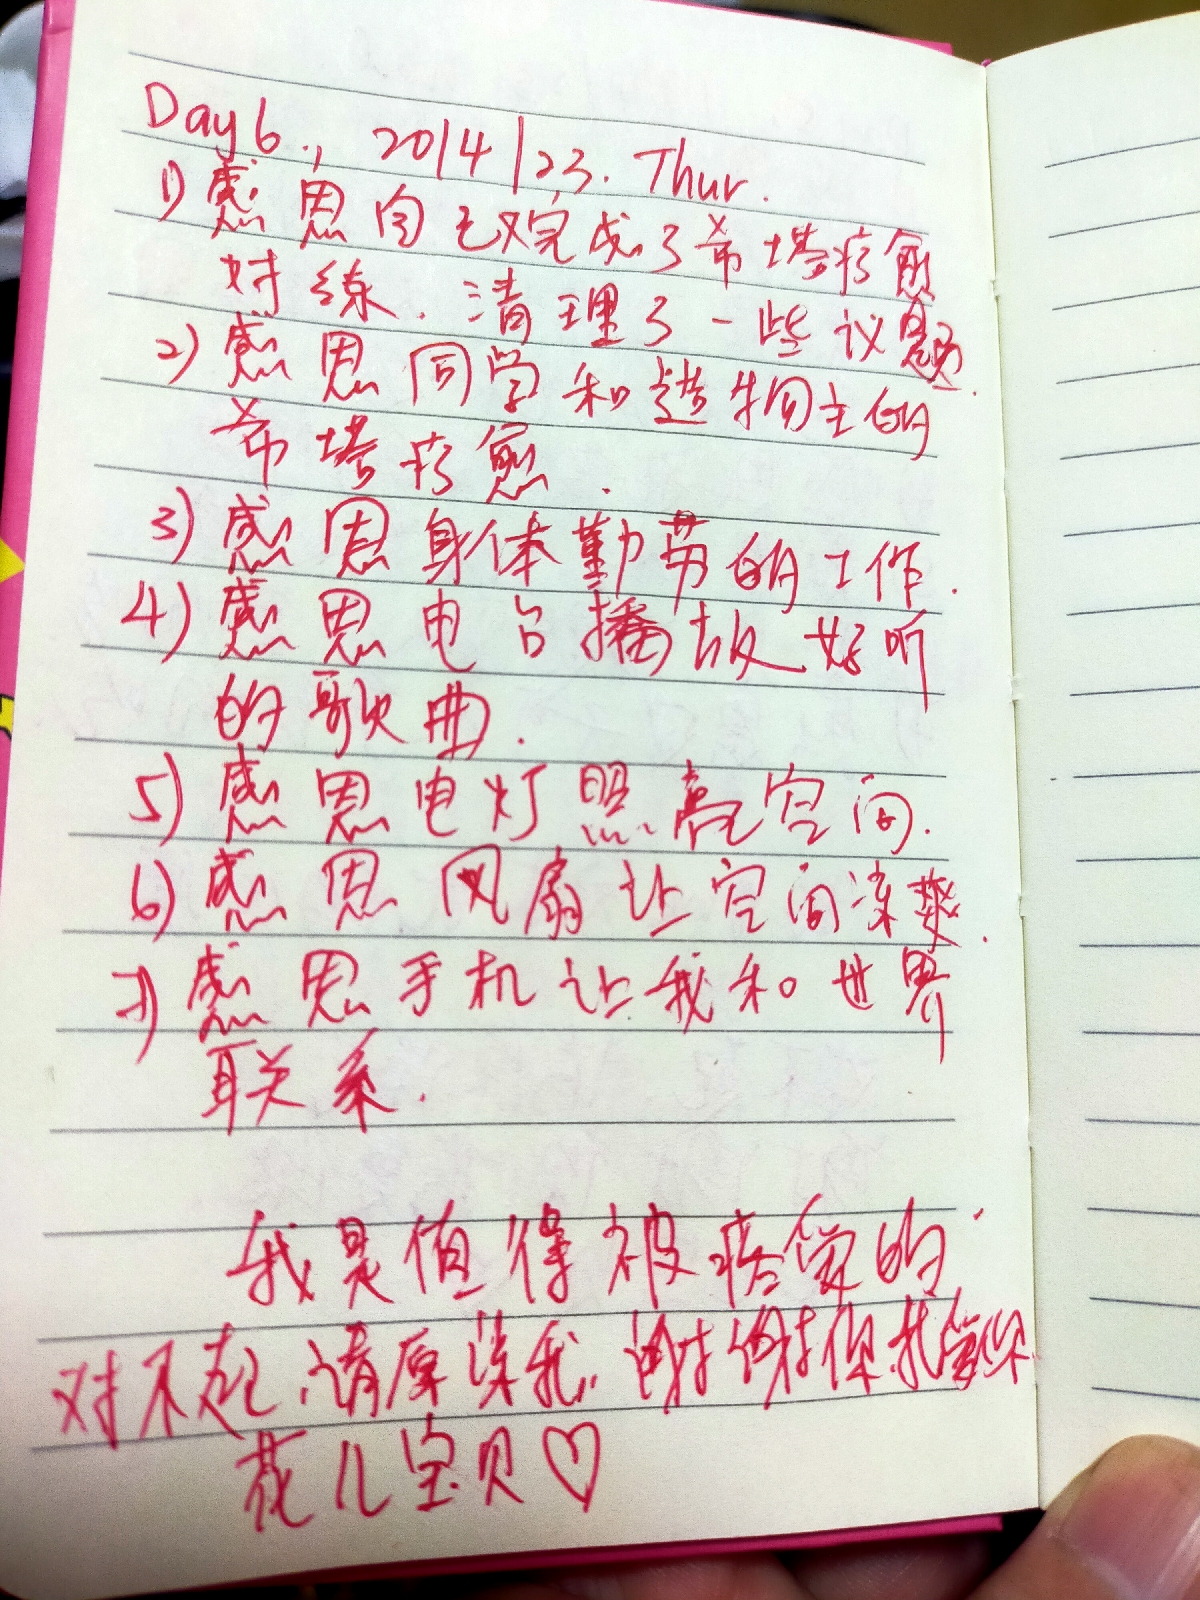 Day 6., 20/4/23. Thur.
1) 感恩自己又完成了希塔疗愈
对练. 清理了一些议题.
2) 感恩同学和造物主的
希塔疗愈.
3) 感恩身体勤劳的工作.
4) 感恩电台播放好听
的歌曲.
5) 感恩电灯照亮空间.
6) 感恩风扇让空间凉爽.
7) 感恩手机让我和世界
联关系.
我是值得被疼爱的.
对不起,请原谅我,谢谢你,我爱你.
花儿宝贝♡